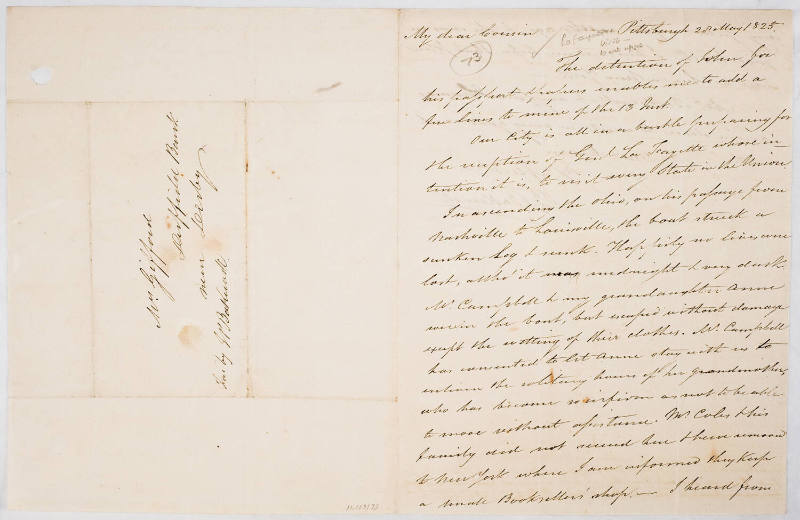 Mrs Gifford
Duffield Bank
near Derby
My dear Cousin Pittsburgh 28 May 1825.
73
The detention of John for
his passport & papers enables me to add a
few lines to mine of the 13 Inst.
Our City is all in a bustle preparing for
the reception of Genl La Fayette whose in
tention it is, to visit every State in the Union
In ascending the Ohio, on his passage from
Nashville to Louisville, the boat struck a
sunken Log & sunk. Happily no lives were
lost, altho' it was midnight & very dark.
Mr Campbell & my grandaughter Anne
were in the boat, but escaped without damage
except the wetting of their clothes. Mr Campbell
has consented to let Anne stay with us to
enliven the solitary hours of her grandmother,
who has become so infirm as not to be able
to move without assistance. Mr Coles & his
family did not succeed here & have removed
to New York where I am informed they keep
a small Booksellers shop. — I heard from